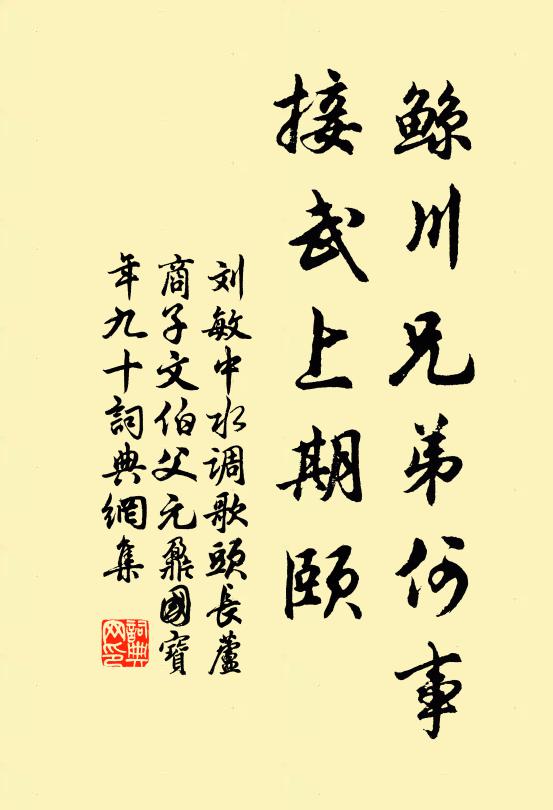 鲸川兄弟何事
接武上期颐
刘敏中水调歌頭長蘆
商子文伯父元鼐國寶
年九十詞典網集
詞典
网印